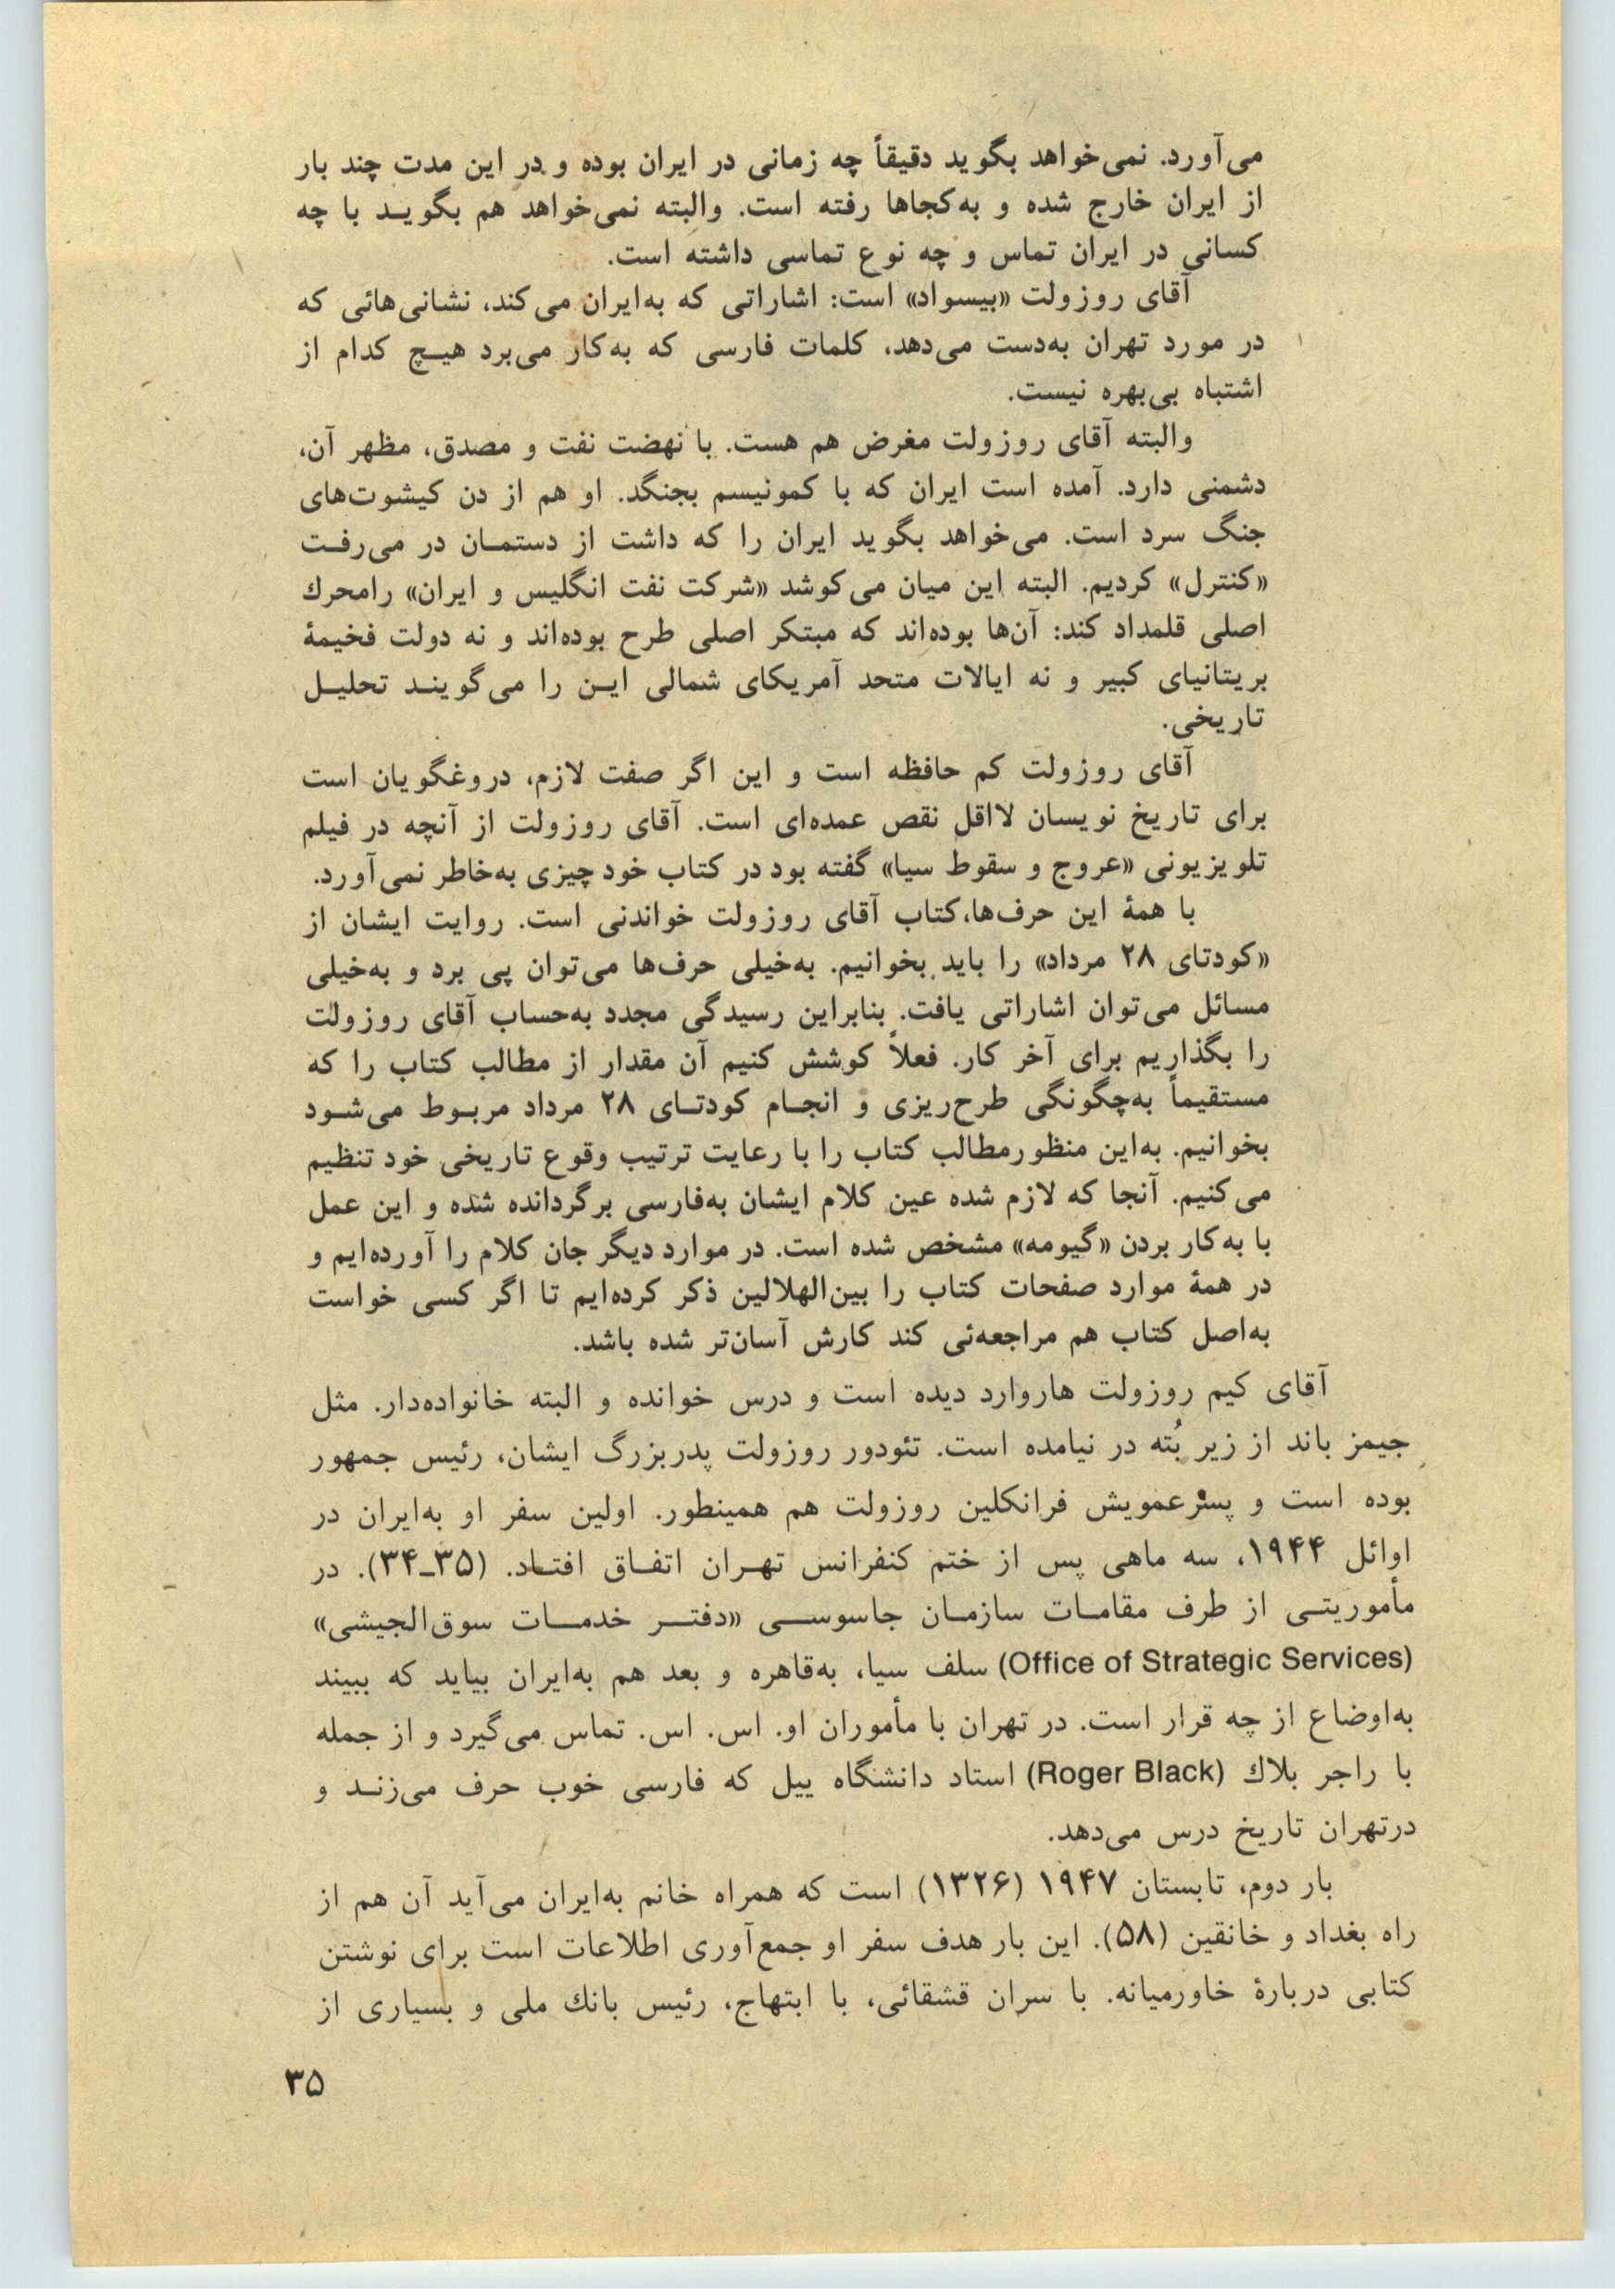 می‌آورد. نمی‌خواهد بگوید دقیقاً چه زمانی در ایران بوده و در این مدت چند بار
از ایران خارج شده و به‌کجاها رفته است. والبته نمی‌خواهد هم بگویـد با چه
کسانی در ایران تماس و چه نوع تماسی داشته است.
آقای روزولت «بیسواد» است: اشاراتی که به‌ایران می‌کند، نشانی‌هائی که
در مورد تهران به‌دست می‌دهد، کلمات فارسی که به‌کار می‌برد هیـچ کدام از
اشتباه بی‌بهره نیست.
والبته آقای روزولت مغرض هم هست. با نهضت نفت و مصدق، مظهر آن،
دشمنی دارد. آمده است ایران که با کمونیسم بجنگد. او هم از دن کیشوت‌های
جنگ سرد است. می‌خواهد بگوید ایران را که داشت از دستمـان در می‌رفـت
«کنترل» کردیم. البته این میان می‌کوشد «شرکت نفت انگلیس و ایران» رامحرك
اصلی قلمداد کند: آن‌ها بوده‌اند که مبتکر اصلی طرح بوده‌اند و نه دولت فخیمهٔ
بریتانیای کبیر و نه ایالات متحد آمریکای شمالی ایـن را می‌گوینـد تحلیـل
تاریخی.
آقای روزولت کم حافظه است و این اگر صفت لازم، دروغگویان است
برای تاریخ نویسان لااقل نقص عمده‌ای است. آقای روزولت از آنچه در فیلم
تلویزیونی «عروج و سقوط سیا» گفته بود در کتاب خود چیزی به‌خاطر نمی‌آورد.
با همهٔ این حرف‌ها،کتاب آقای روزولت خواندنی است. روایت ایشان از
«کودتای ۲۸ مرداد» را باید بخوانیم. به‌خیلی حرف‌ها می‌توان پی برد و به‌خیلی
مسائل می‌توان اشاراتی یافت. بنابراین رسیدگی مجدد به‌حساب آقای روزولت
را بگذاریم برای آخر کار. فعلاً کوشش کنیم آن مقدار از مطالب کتاب را که
مستقیماً به‌چگونگی طرح‌ریزی و انجـام کودتـای ۲۸ مرداد مربـوط می‌شـود
بخوانیم. به‌این منظورمطالب کتاب را با رعایت ترتیب وقوع تاریخی خود تنظیم
می‌کنیم. آنجا که لازم شده عین کلام ایشان به‌فارسی برگردانده شده و این عمل
با به‌کار بردن «گیومه» مشخص شده است. در موارد دیگر جان کلام را آورده‌ایم و
در همهٔ موارد صفحات کتاب را بین‌الهلالین ذکر کرده‌ایم تا اگر کسی خواست
به‌اصل کتاب هم مراجعه‌ئی کند کارش آسان‌تر شده باشد.
آقای کیم روزولت هاروارد دیده است و درس خوانده و البته خانواده‌دار. مثل
جیمز باند از زیر بُته در نیامده است. تئودور روزولت پدربزرگ ایشان، رئیس جمهور
بوده است و پسرعمویش فرانکلین روزولت هم همینطور. اولین سفر او به‌ایران در
اوائل ۱۹۴۴، سه ماهی پس از ختم کنفرانس تهـران اتفـاق افتـاد. (۳۵ـ۳۴). در
مأموریتـی از طرف مقامـات سازمـان جاسوســی «دفتــر خدمــات سوق‌الجیشی»
(Office of Strategic Services) سلف سیا، به‌قاهره و بعد هم به‌ایران بیاید که ببیند
به‌اوضاع از چه قرار است. در تهران با مأموران او. اس. اس. تماس می‌گیرد و از جمله
با راجر بلاك (Roger Black) استاد دانشگاه ییل که فارسی خوب حرف می‌زنـد و
درتهران تاریخ درس می‌دهد.
بار دوم، تابستان ۱۹۴۷ (۱۳۲۶) است که همراه خانم به‌ایران می‌آید آن هم از
راه بغداد و خانقین (۵۸). این بار هدف سفر او جمع‌آوری اطلاعات است برای نوشتن
کتابی دربارهٔ خاورمیانه. با سران قشقائی، با ابتهاج، رئیس بانك ملی و بسیاری از
۳۵